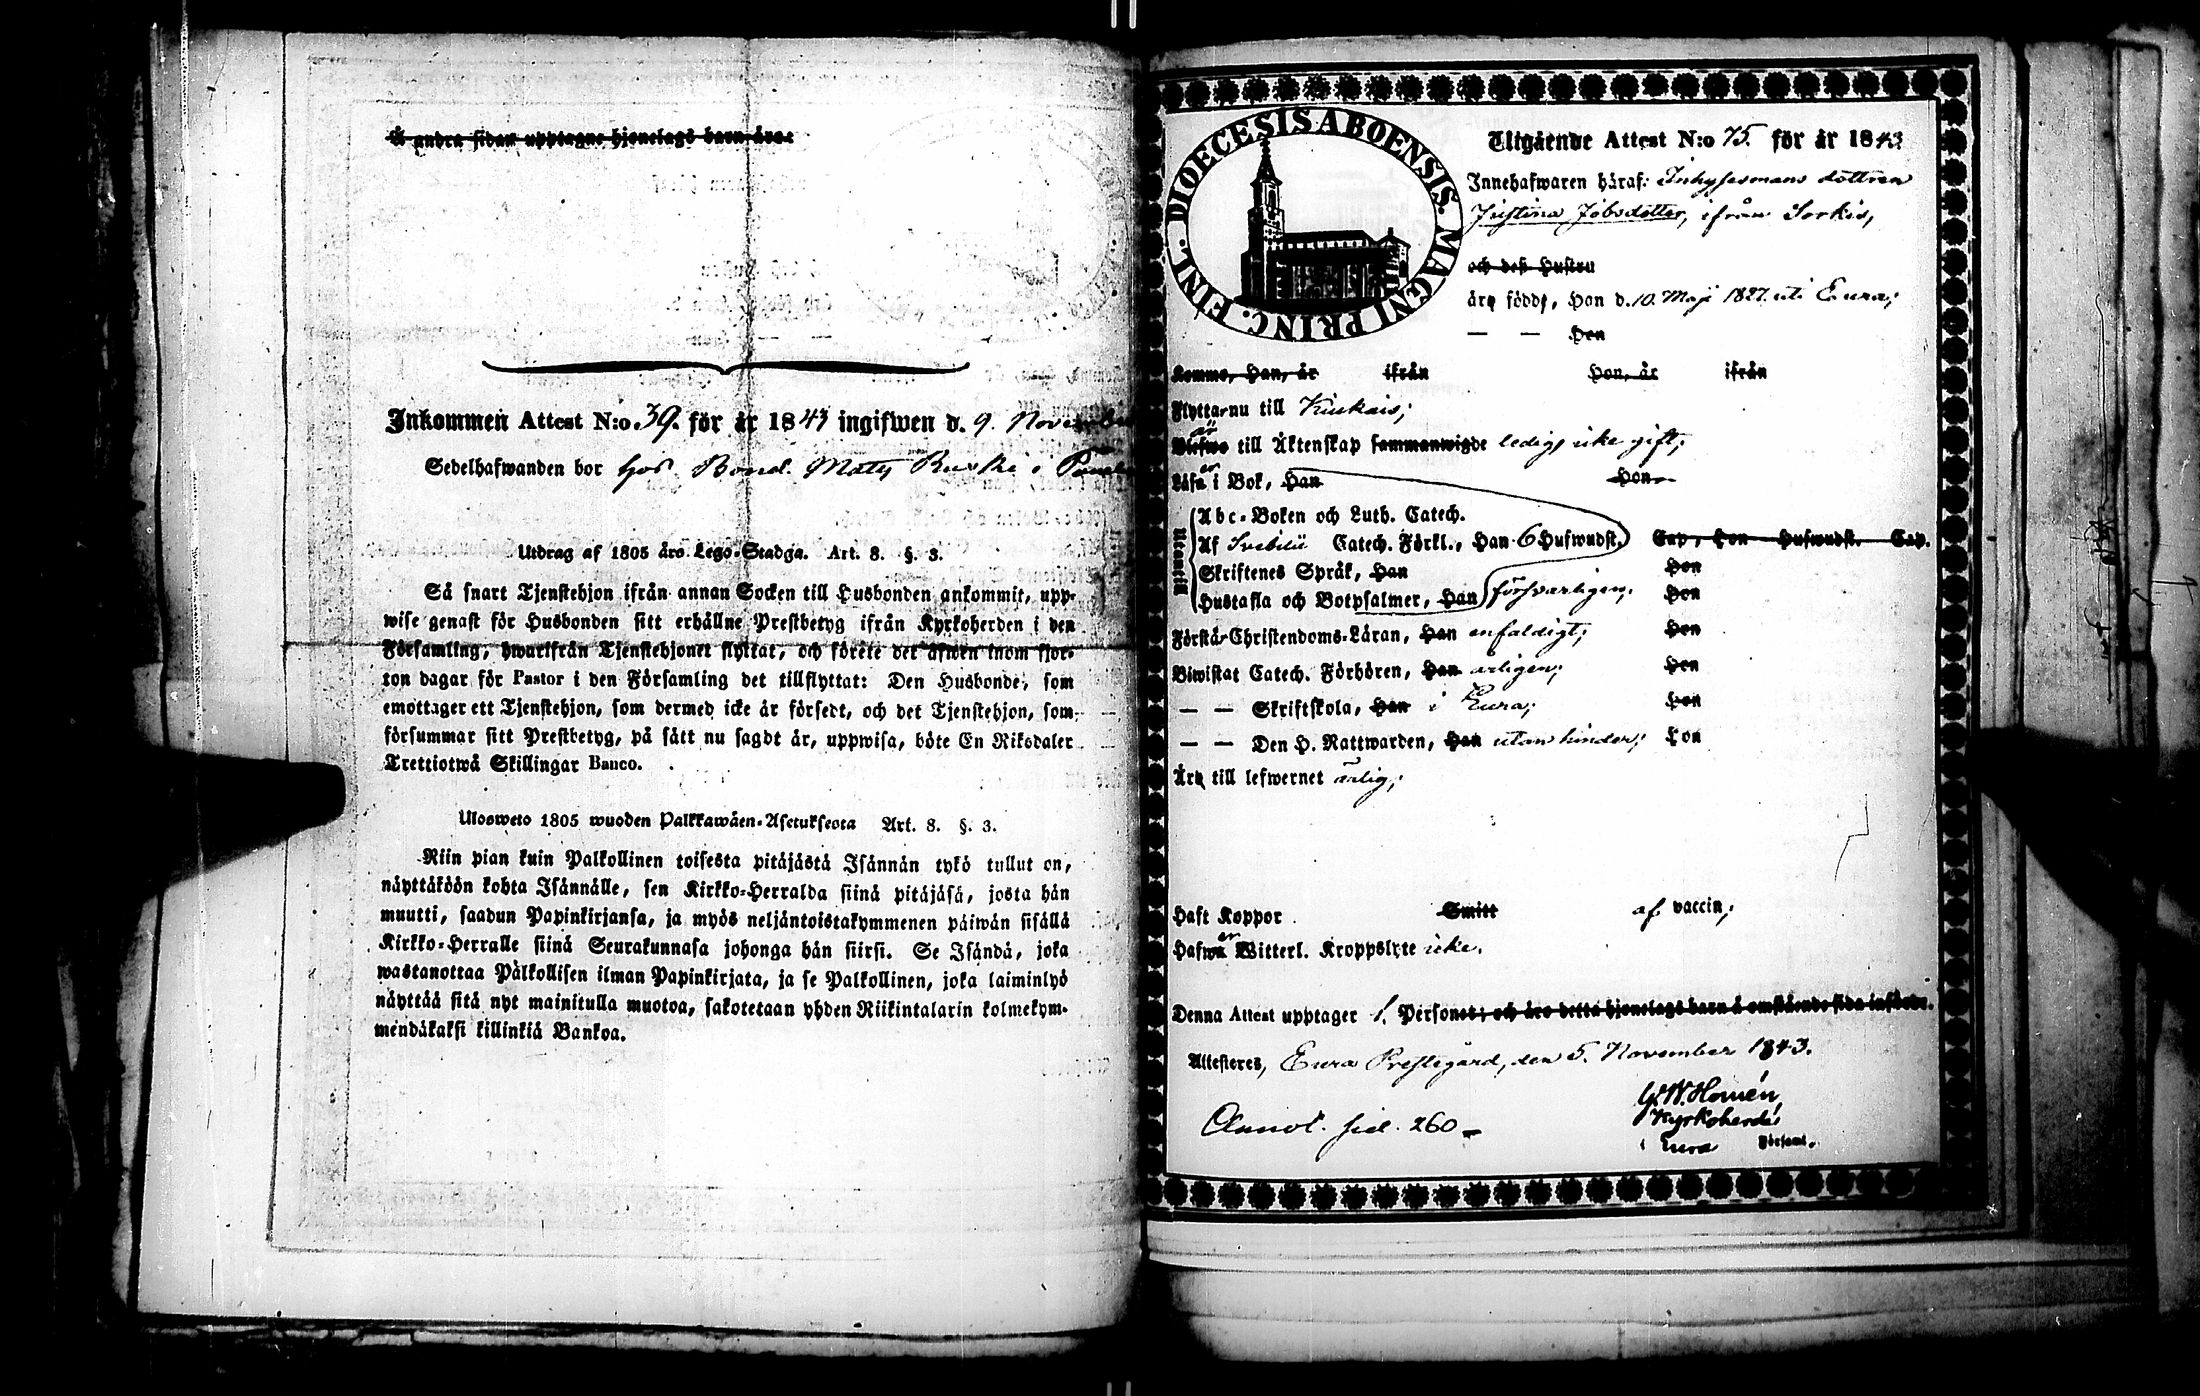 Å andra sidan upptagne hjonelags barn äro:
Inkommen Attest N:o 39. för år 1843 ingifwen d. 9. November
Sedelhafwanden bor hos Bond. Mats Ruski i
Utdrag af 1805 års Lego-Stadga. Art. 8. §. 3.
Så snart Tjenstehjon ifrån annan Socken till Husbonden ankommit, upp-
wise genast för Husbonden sitt erhållne Prestbetyg ifrån Kyrkoherden i den
Församling, hwarifrån Tjenstehjonet flyttat, och förete det äfwen inom fjor-
ton dagar för Pastor i den Församling det tillflyttat: Den Husbonde, som
emottager ett Tjenstehjon, som dermed icke är försedt, och det Tjenstehjon, som
försummar sitt Prestbetyg, på sätt nu sagdt är, uppwisa, böte En Riksdaler
Trettiotwå Skillingar Banco.
Ulosweto 1805 wuoden Palkkawäen-Asetuksesta Art. 8. §. 3.
Niin pian kuin Palkollinen toisesta pitäjästä Isännän tykö tullut on,
näyttäköön kohta Isännälle, sen Kirkko-Herralda siinä pitäjäsä, josta hän
muutti, saadun Papinkirjansa, ja myös neljäntoistakymmenen päiwän sisällä
Kirkko-Herralle siinä Seurakunnasa johonga hän siirsi. Se Isändä, joka
wastanottaa Palkollisen ilman Papinkirjata, ja se Palkollinen, joka laiminlyö
näyttää sitä nyt mainitulla muotoa, sakotetaan yhden Riikintalarin kolmekym-
mendäkaksi killinkiä Bankoa.
DIOECESIS ABOENSIS. MAGNI PRINC. FINL.
Utgående Attest N:o 75. för år 1843
Innehafwaren häraf: Inhysesmans dottren
Justina Jobsdotter, ifrån Sorkis,
och dess Hustru
äro födde, Hon d. 10. Maji 1827. uti Eura;
— — Hon
Komne, Han, år ifrån Hon, år ifrån
Flyttar nu till Kiukais;
är
Blefwo till Äktenskap sammanwigde ledig, icke gift;
er
Läsa i Bok, Han Hon
Utantill
Abc-Boken och Luth. Catech.
Af Svebilii Catech. Förkl., Han 6 Hufwudst. Cap, Hon Hufwudst. Cap.
Skriftenes Språk, Han Hon
Hustafla och Botpsalmer, Han försvarligen; Hon
Förstår Christendoms-Läran, Han enfaldigt; Hon
Biwistat Catech. Förhören, Han årligen; Hon
— — Skriftskola, Han i Eura; Hon
— — Den H. Nattwarden, Han utan hinder; Hon
Äro till lefwernet ärlig;
Haft Koppor Smitt af vaccin;
er
Hafwa Witterl. Kroppslyte icke.
Denna Attest upptager 1. Personer; och äro detta hjonelags barn å omstående sida införde.
Attesteres, Eura Prestegård, den 5. November 1843.
G. W. Homén,
Kyrkoherde
i Eura Församl.
Annot. sid. 260